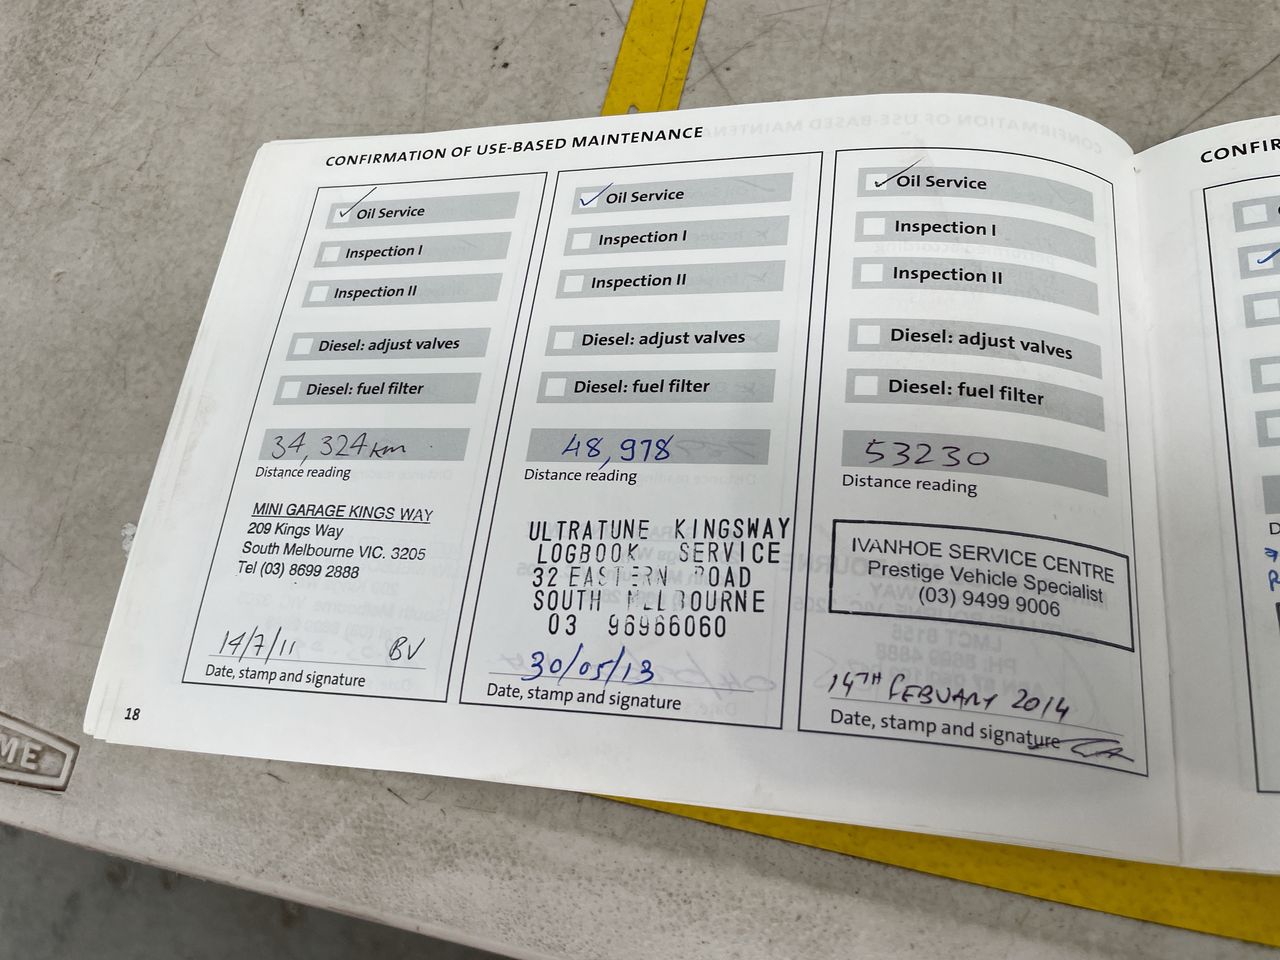 CONFIRMATION OF USE-BASED MAINTENANCE
Oil Service
Inspection I
Inspection II
Diesel: adjust valves
Diesel: fuel filter
34,324km
Distance reading
MINI GARAGE KINGS WAY
209 Kings Way
South Melbourne VIC. 3205
Tel (03) 8699 2888
14/7/11 BV
Date, stamp and signature
18
Oil Service
Inspection I
Inspection II
Diesel: adjust valves
Diesel: fuel filter
48,978
Distance reading
ULTRATUNE KINGSWAY
LOGBOOK SERVICE
32 EASTERN ROAD
SOUTH MELBOURNE
03 96966060
30/05/13
Date, stamp and signature
Oil Service
Inspection I
Inspection II
Diesel: adjust valves
Diesel: fuel filter
53230
Distance reading
IVANHOE SERVICE CENTRE
Prestige Vehicle Specialist
(03) 9499 9006
14TH FEBUARY 2014
Date, stamp and signature
CONFIR
Dis
ME